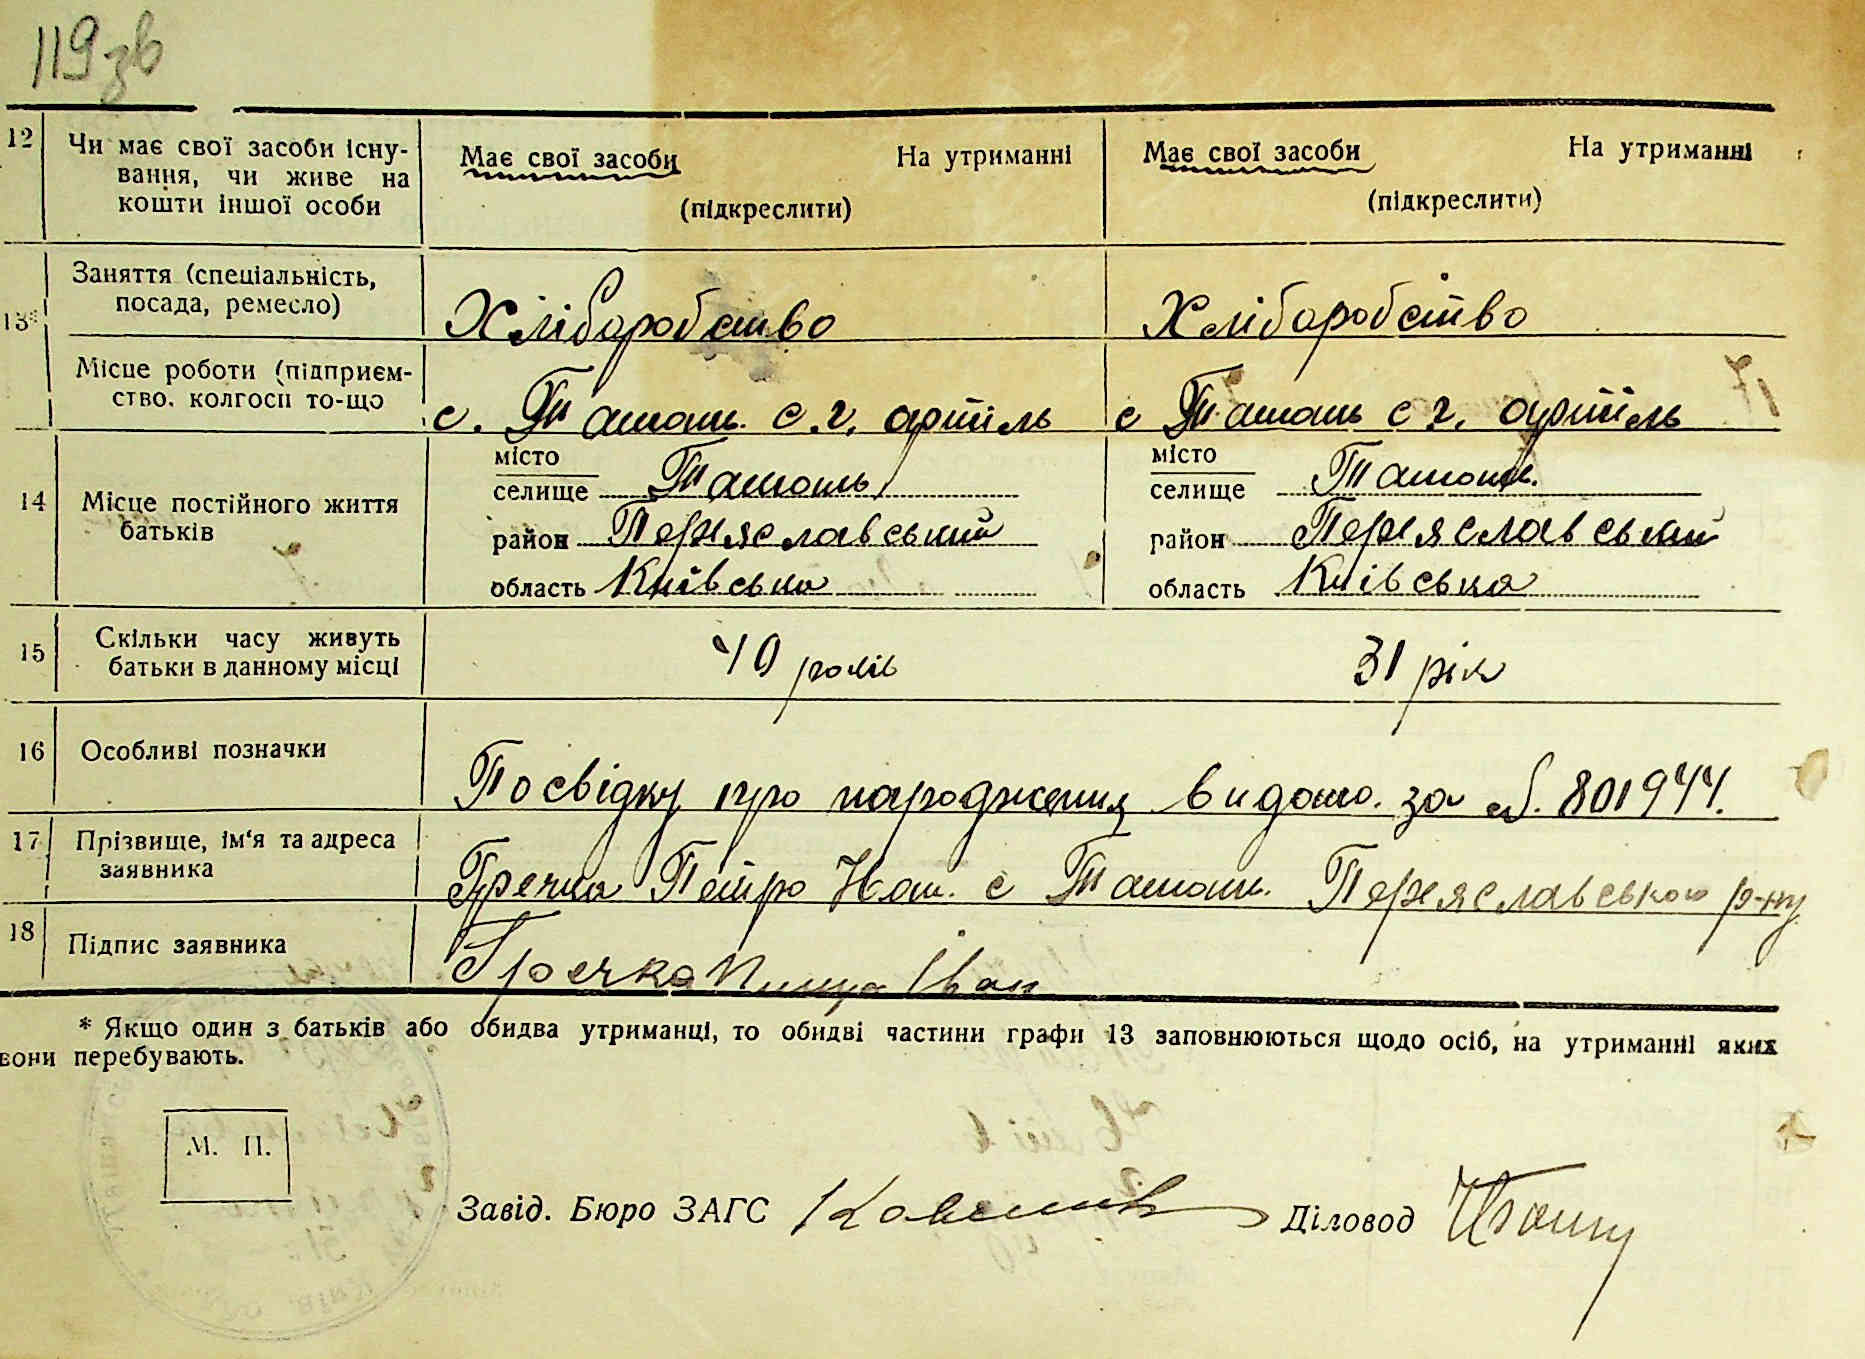 119 зв
12 Чи має свої засоби існу-
вання, чи живе на
кошти іншої особи
Має свої засоби На утриманні
(підкреслити)
Має свої засоби На утриманні
(підкреслити)
13* Заняття (спеціальність,
посада, ремесло)
Хліборобство
Хліборобство
Місце роботи (підприєм-
ство, колгосп то-що
с. Ташань с.г. артіль
с Ташань с г. артіль
14 Місце постійного життя
батьків
місто
селище Ташань
район Переяславський
область Київська
місто
селище Ташань
район Переяславський
область Київська
15 Скільки часу живуть
батьки в данному місці
40 років
31 рік
16 Особливі позначки
Посвідку про народження видано за 801944.
17 Прізвище, ім'я та адреса
заявника
Гречка Петро Iван. с Ташань Переяславського р-ну
18 Підпис заявника
Гречка Іван
* Якщо один з батьків або обидва утриманці, то обидві частини графи 13 заповнюються щодо осіб, на утриманні яких
вони перебувають.
М. П.
Завід. Бюро ЗАГС
Діловод